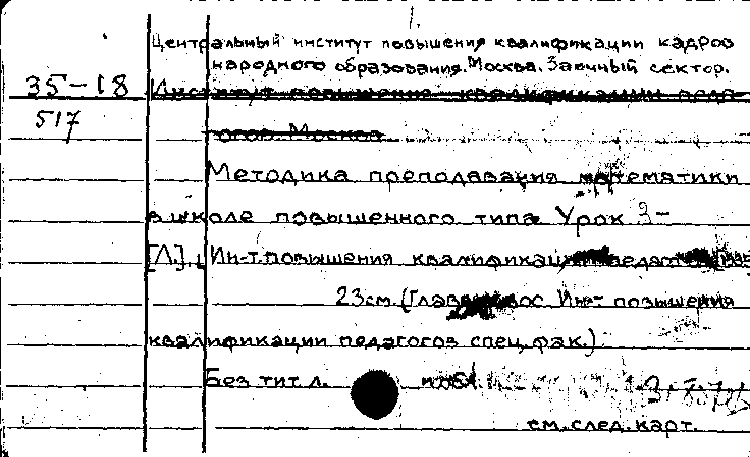 1.
Центральный институт повышения квалификации кадров
народного образования. Москва. Заочный сектор.
35-18 Институт повышения квалификации педа-
517
гогов. Москва
Методика преподавания математики
в школе повышенного типа Урок 3-
[Л.], Ин-т повышения квалификации педагогов
23см. (Главн. Ин-т повышения
квалификации педагогов спец. фак.)
Без тит. л.
см. след. карт.